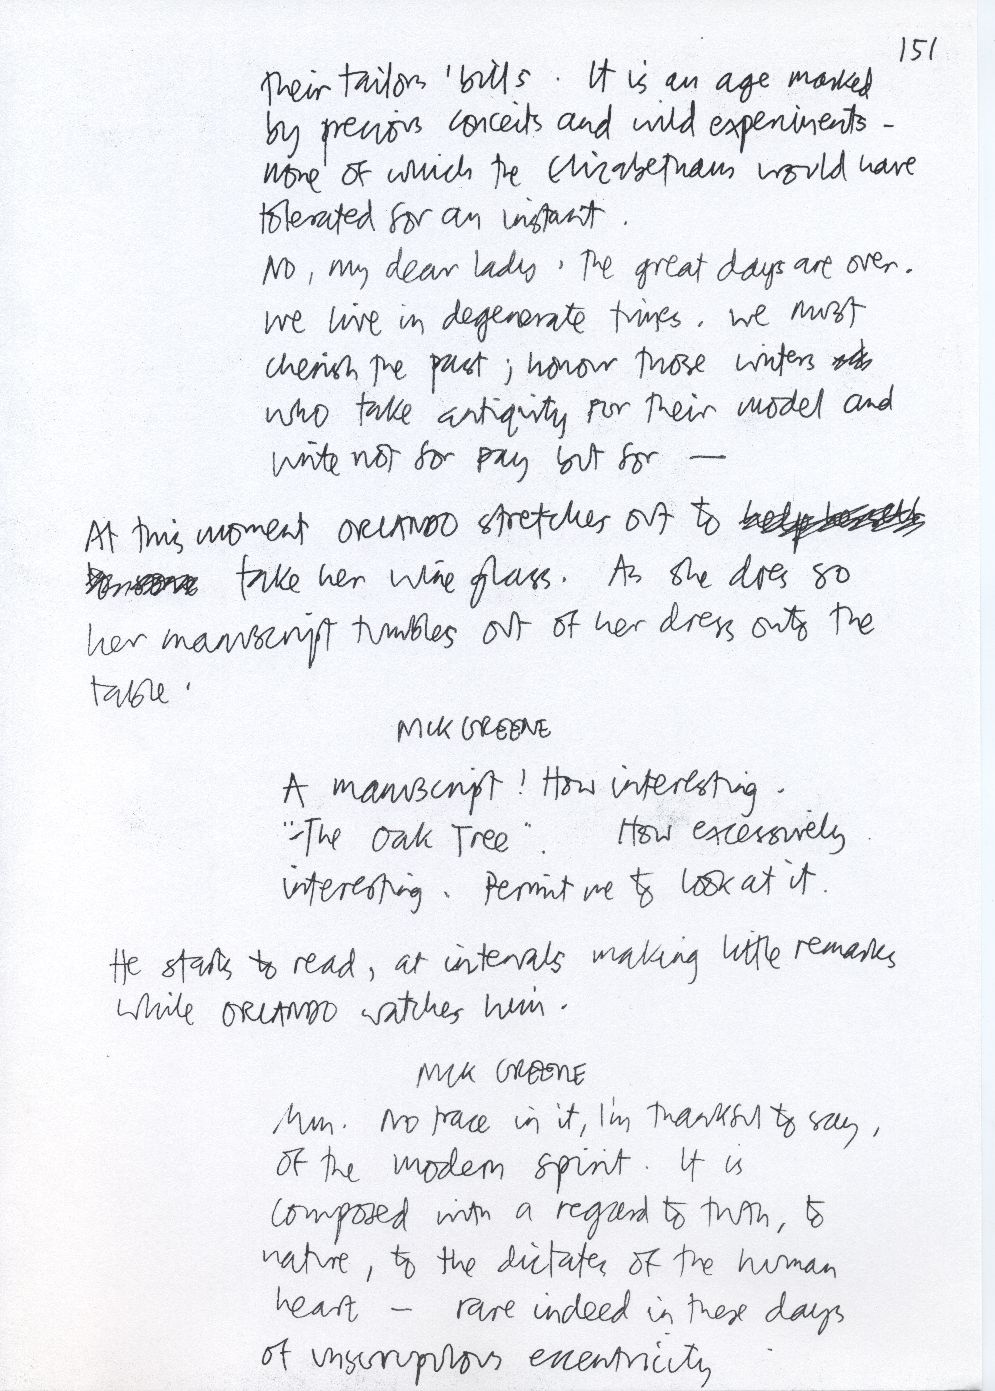 151
their tailors' bills. It is an age marked
by precious conceits and wild experiments -
none of which the Elizabethans would have
tolerated for an instant.
No, my dear lady, the great days are over.
We live in degenerate times. We must
cherish the past; honour those writers
who take antiquity for their model and
write not for pay but for —
At this moment ORLANDO stretches out to
take her wine glass. As she does so
her manuscript tumbles out of her dress onto the
table.
NICK GREENE
A manuscript! How interesting.
"The Oak Tree". How excessively
interesting. Permit me to look at it.
He starts to read, at intervals making little remarks
while ORLANDO watches him.
NICK GREENE
Mm. No trace in it, I'm thankful to say,
of the modern spirit. It is
composed with a regard to truth, to
nature, to the dictates of the human
heart — rare indeed in these days
of unscrupulous eccentricity